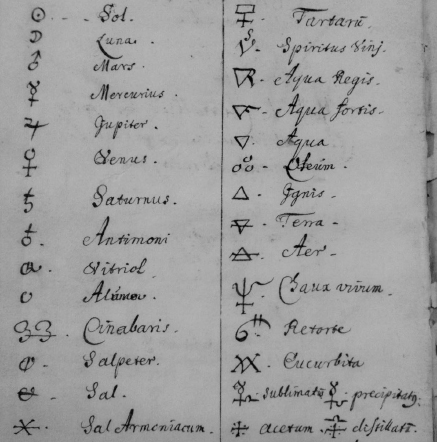 Sol.
Luna.
Mars.
Mercurius.
Jupiter.
Venus.
Saturnus.
Antimoni
Vitriol
Alumen.
Cin̄abaris.
Salpeter.
Sal.
Sal Armeniacum.
Tartarū.
Spiritus Vinj.
Aqua Regis.
Aqua fortis.
Aqua
Oleum.
Ignis
Terra
Aer
Chaux vivum.
Retorte
Cucurbita
sublimatꝫ præcipitatꝫ
acetum distillatū